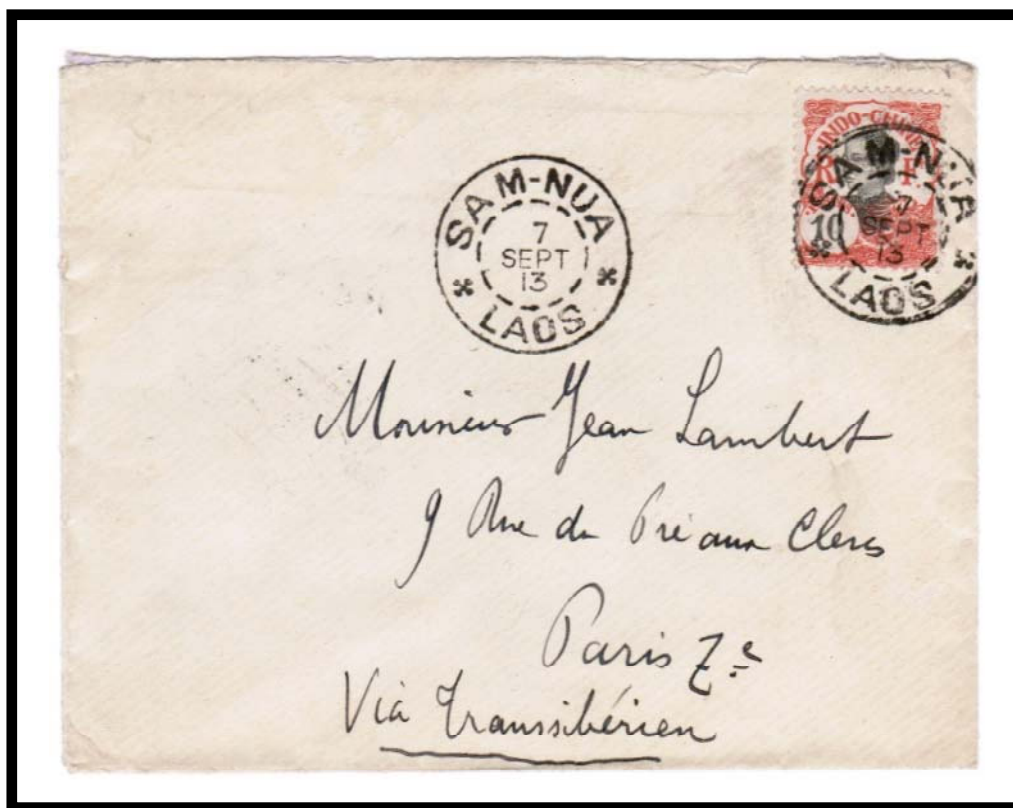 SAM-NUA
7
SEPT
13
LAOS
INDO-CHINE
R F
10
SAM-NUA
7
SEPT
13
LAOS
Monsieur Jean Lambert
9 Rue du Pré aux Clercs
Paris 7e
Via Transsibérien